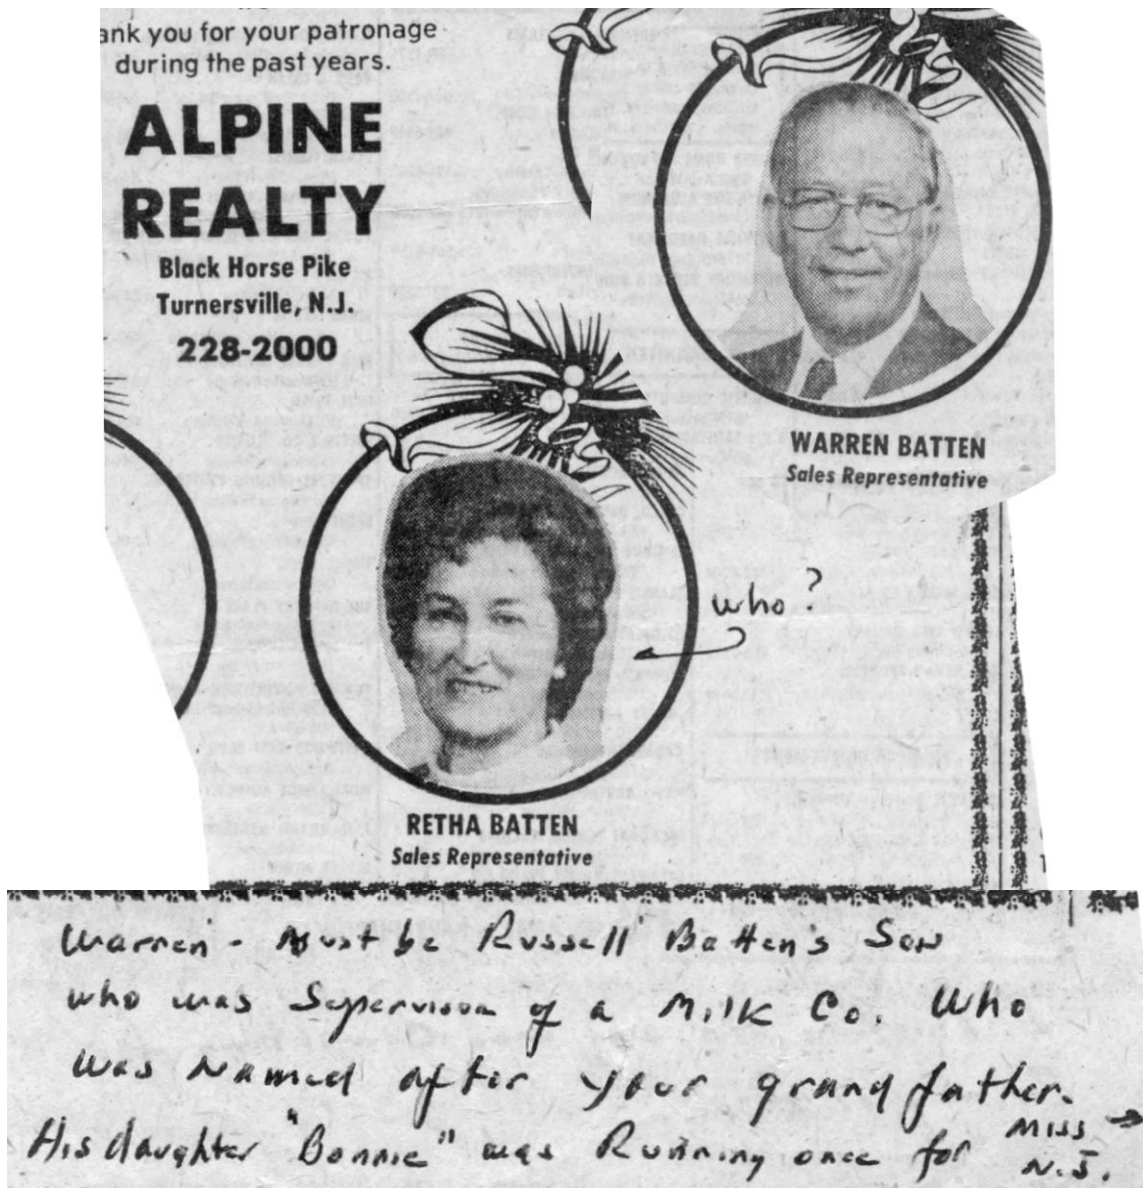 ank you for your patronage
during the past years.
ALPINE
REALTY
Black Horse Pike
Turnersville, N.J.
228-2000
WARREN BATTEN
Sales Representative
who?
RETHA BATTEN
Sales Representative
Warren - Must be Russell Batten's Son
who was Supervisor of a Milk Co. Who
was Named after your grandfather.
His daughter "Bonnie" was Running once for Miss →
N.J.